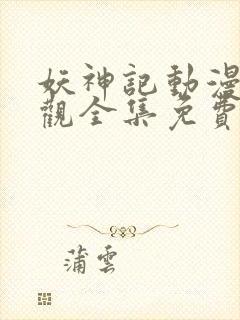 妖神記動漫
觀全集免費
蒲雲